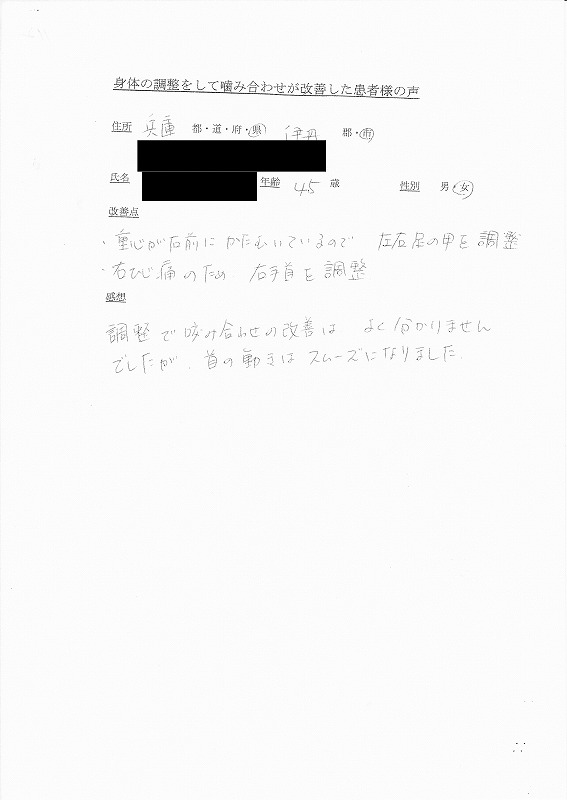 身体の調整をして噛み合わせが改善した患者様の声
住所 兵庫 都・道・府・県 伊丹 郡・市
氏名 年齢 45 歳 性別 男・女
改善点
・重心が右前にかたむいているので 左右足の甲を調整
・右ひじ痛のため 右手首を調整
感想
調整で咬み合わせの改善は よく分かりません
でしたが、首の動きは スムーズになりました.